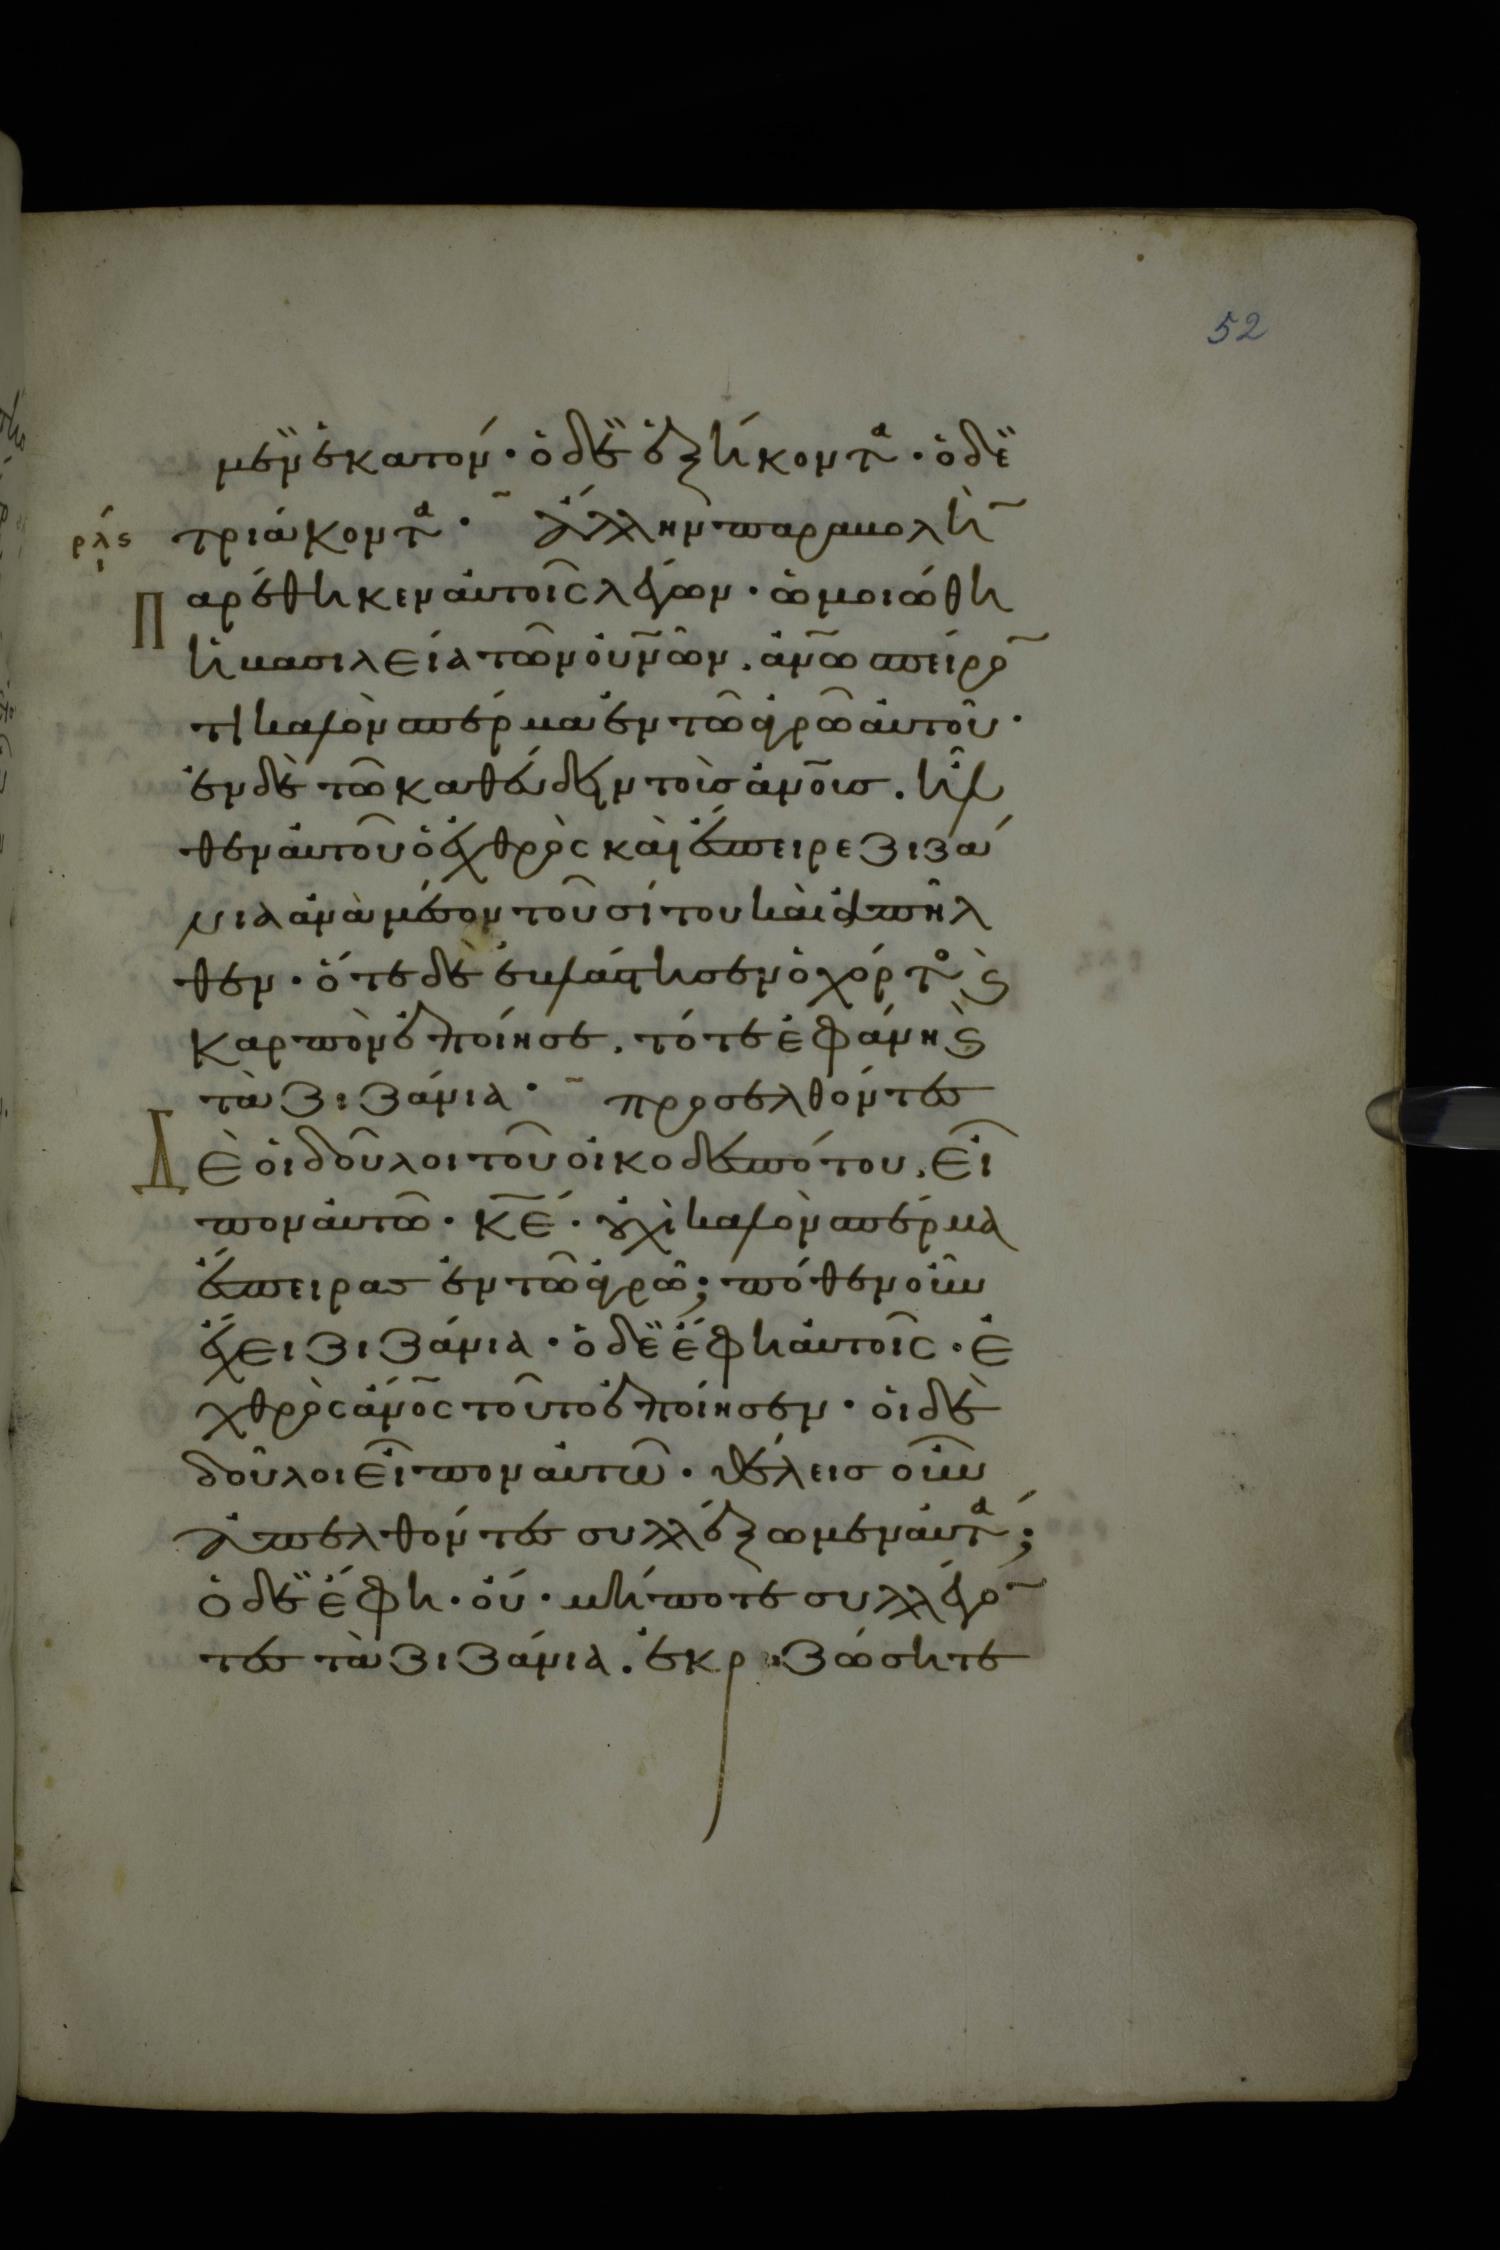 52
μὲν ἑκατόν · ὁ δὲ ἑξήκοντα · ὁ δὲ
ρλϛ τριάκοντα · Ἄλλην παραβολὴν
ι
Παρέθηκεν αὐτοῖς λέγων · ὡμοιώθη
ἡ βασιλεία τῶν οὐνῶν . ἀνῶ σπείρον
τι καλὸν σπέρμα ἐν τῶ ἀγρῶ αὐτοῦ ·
ἐν δὲ τῶ καθεύδειν τοὺσ ἀνους . ἦλ
θεν αὐτοῦ ὁ ἐχθρὸς καὶ ἔσπειρε ζιζά
νια ἀνὰ μέσον τοῦ σίτου καὶ ἀπῆλ
θεν · ὅτε δὲ ἐβλάστησεν ὁ χόρτος ϗ
καρπὸν ἐποίησε . τότε ἐφάνη ϗ
τὰ ζιζάνια · προσελθόντες
Δὲ οἱ δοῦλοι τοῦ οἰκοδεσπότου . εἶ
πον αὐτῶ · κε · οὐχὶ καλὸν σπέρμα
ἔσπειρασ ἐν τῶ ἀγρῶ ; πόθεν οὖν
ἔχει ζιζάνια · ὁ δὲ ἔφη αὐτοῖς · ἐ
χθρὸς ἄνος τοῦτο ἐποίησεν · οἱ δὲ
δοῦλοι εἶπον αὐτῶ · θέλεισ οὖν
ἀπελθόντες συλλέξωμεν αὐτά ;
ὁ δὲ ἔφη · οὔ · μήποτε συλλέγον
τες τὰ ζιζάνια . ἐκριζώσητε